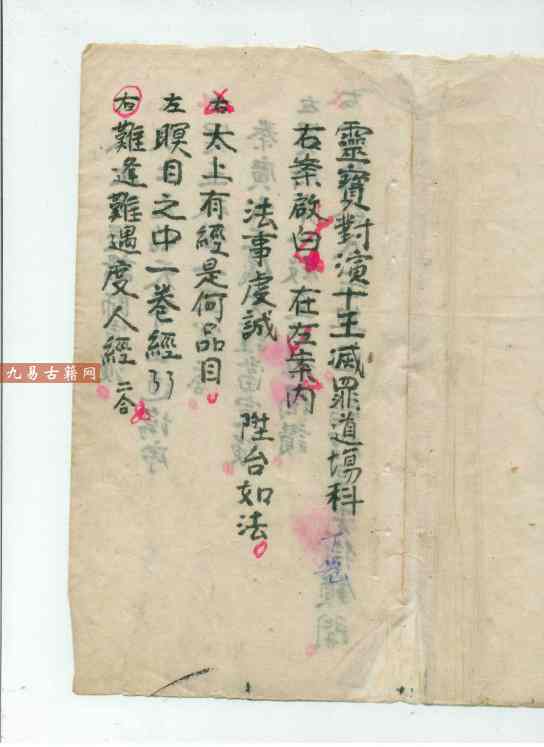 靈寶對演十王滅罪道場科
右案啟白 在左案内
法事虔誠 陞台如法
右太上有經是何品目
左瞑目之中一卷經
右難逢難遇度人經 二合
九易古籍网